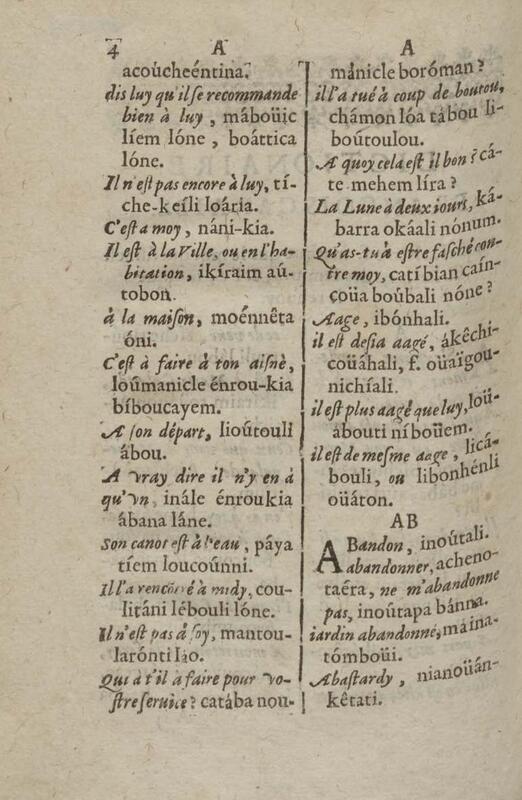 4 A
acoúcheéntina.
dis luy qu'il se recommande
bien à luy, máboüic
líem lóne, boáttica
lóne.
Il n'est pas encore à luy, tí-
che-keíli loária.
C'est a moy, náni-kia.
Il est à la Ville, ou en l'ha-
bitation, ikíraim aú-
tobon.
à la maison, moénnêta
óni.
C'est à faire à ton aisnè,
loúmanicle énrou-kia
bíboucayem.
A son départ, lioútouli
ábou.
A vray dire il n'y en à
qu'vn, inále énroukia
ábana láne.
Son canot est à l'eau, páya
tíem loucoúnni.
Il l'a rencõtré à midy, cou-
litáni lébouli lóne.
Il n'est pas à soy, mantou-
larónti lao.
Qui à t'il à faire pour vo-
stre seruice? catába nou-
A
mánicle boróman?
il l'a tué à coup de boutou,
chámon lóa tábou li-
boútoulou.
A quoy cela est il bon? cá-
te mehem líra?
La Lune à deux iours, ká-
barra okáali nónum.
Qu'as-tu à estre fasché con-
tre moy, catí bian caín-
çoüa boúbali nóne?
Aage, ibónhali.
il est desia aagé, ákêchi-
coüáhali, f. oüaïgou-
nichíali.
il est plus aagé que luy, loü-
ábouti níboüem.
il est de mesme aage, licá-
bouli, ou libonhénli
oüáton.
AB
ABandon, inoútali.
abandonner, acheno-
taéra, ne m'abandonne
pas, inoútapa bánna.
iardin abandonné, máina-
tómboüi.
Abastardy, nianoüán-
kêtati.